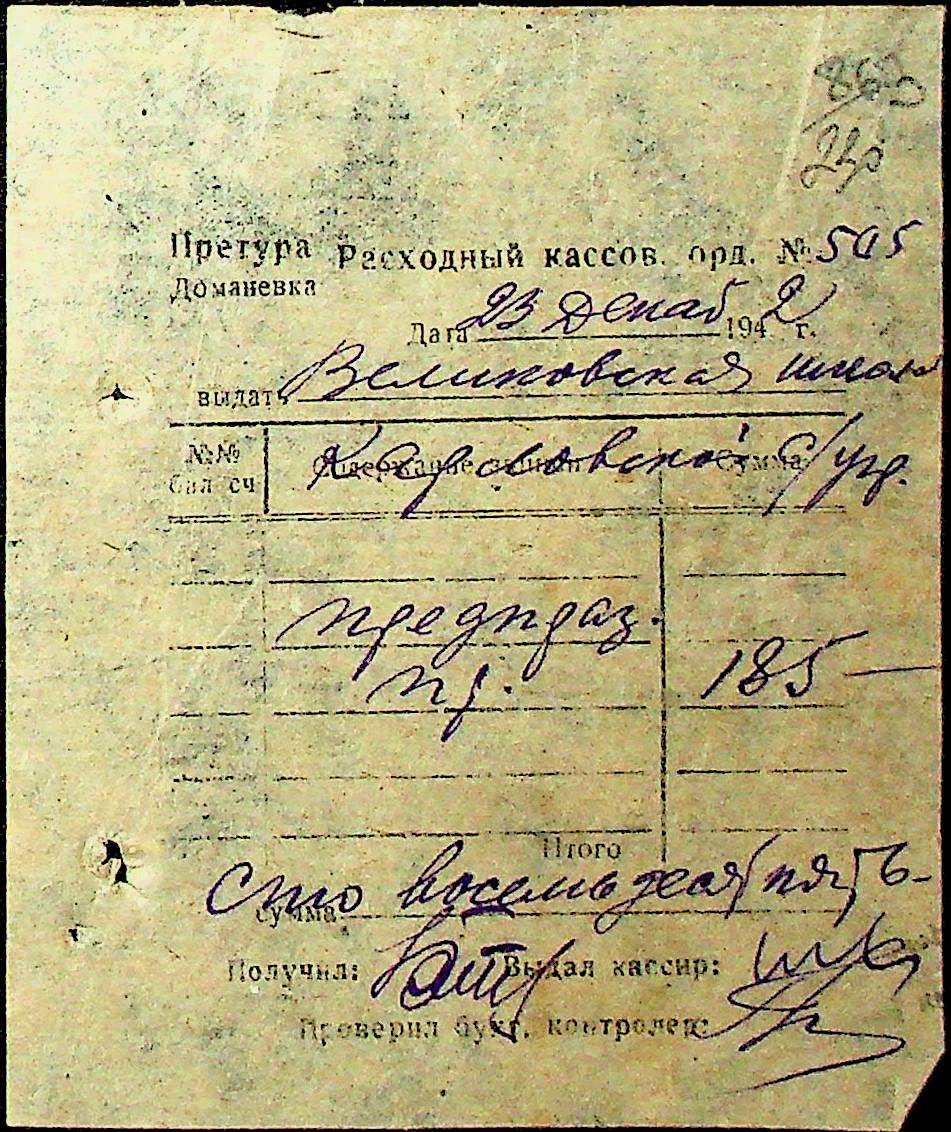 860
Претура Расходный кассов. орд. № 505
Доманевка
Дата 23 Декаб 1942 г.
выдать Великовская школа
№№ Содержание Сумма
бал сч
Карловской с/упр.
предпраз.
пр. 185 —
Итого
сто восемьдесят пять
сумма
Получил: Выдал кассир:
Проверил бухг. контролер: